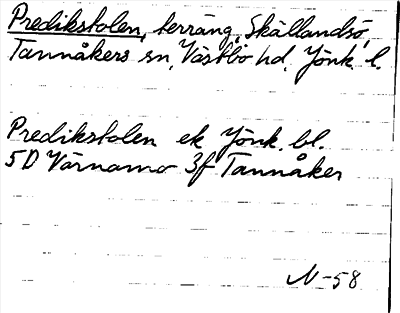 Predikstolen, terräng, Skällandsö,
Tannåkers sn, Västbo hd, Jönk. l.
Predikstolen ek Jönk. bl.
5D Värnamo 3f Tannåker
N-58